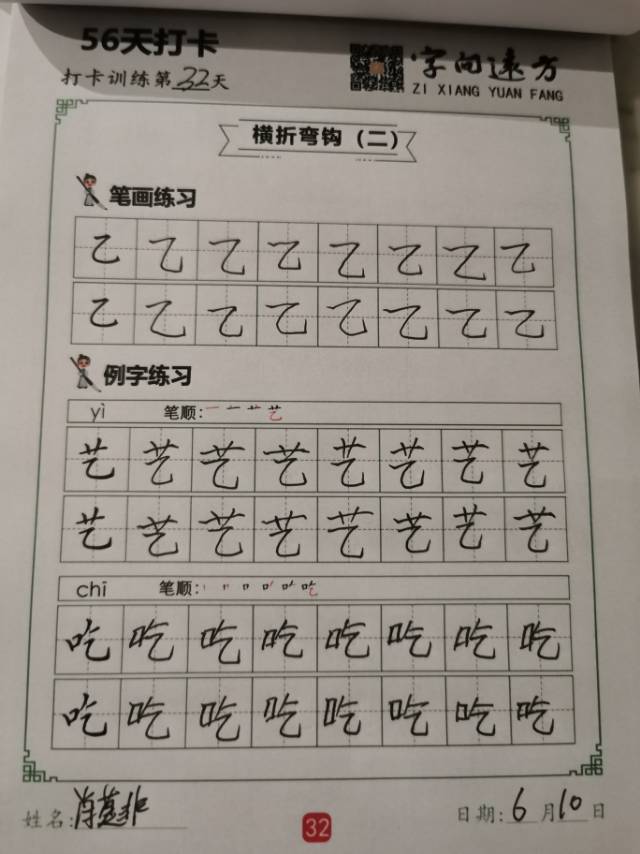 56天打卡
打卡训练第32天
字向远方
ZI XIANG YUAN FANG
横折弯钩（二）
笔画练习
乙 乙 乙 乙 乙 乙 乙 乙
乙 乙 乙 乙 乙 乙 乙 乙
例字练习
yì 笔顺：
艺 艺 艺 艺 艺 艺 艺 艺
艺 艺 艺 艺 艺 艺 艺 艺
chī 笔顺：
吃 吃 吃 吃 吃 吃 吃 吃
吃 吃 吃 吃 吃 吃 吃 吃
姓名：
日期：6月10日
32